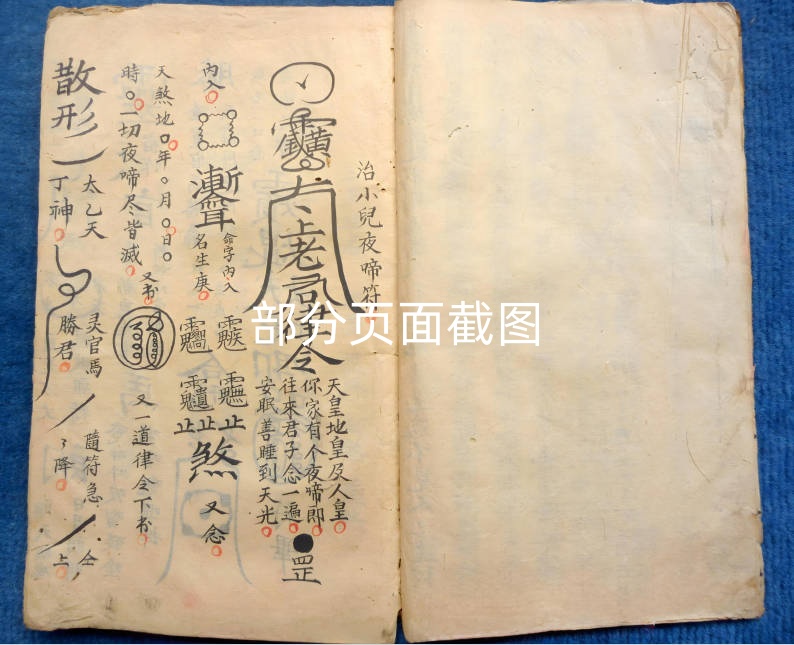 治小兒夜啼符
太上老君
令
天皇地皇及人皇
你家有个夜啼即
往來君子念一遍
安眠善睡到天光
罡
內入
聻
命字內入
名生庚
止止止
煞
又念
天煞地年月日
時一切夜啼尽皆滅
又书
又一道律令下书
散形
太乙天
丁神
灵官馬
勝君
隨符急
降
仝
上
部分页面截图